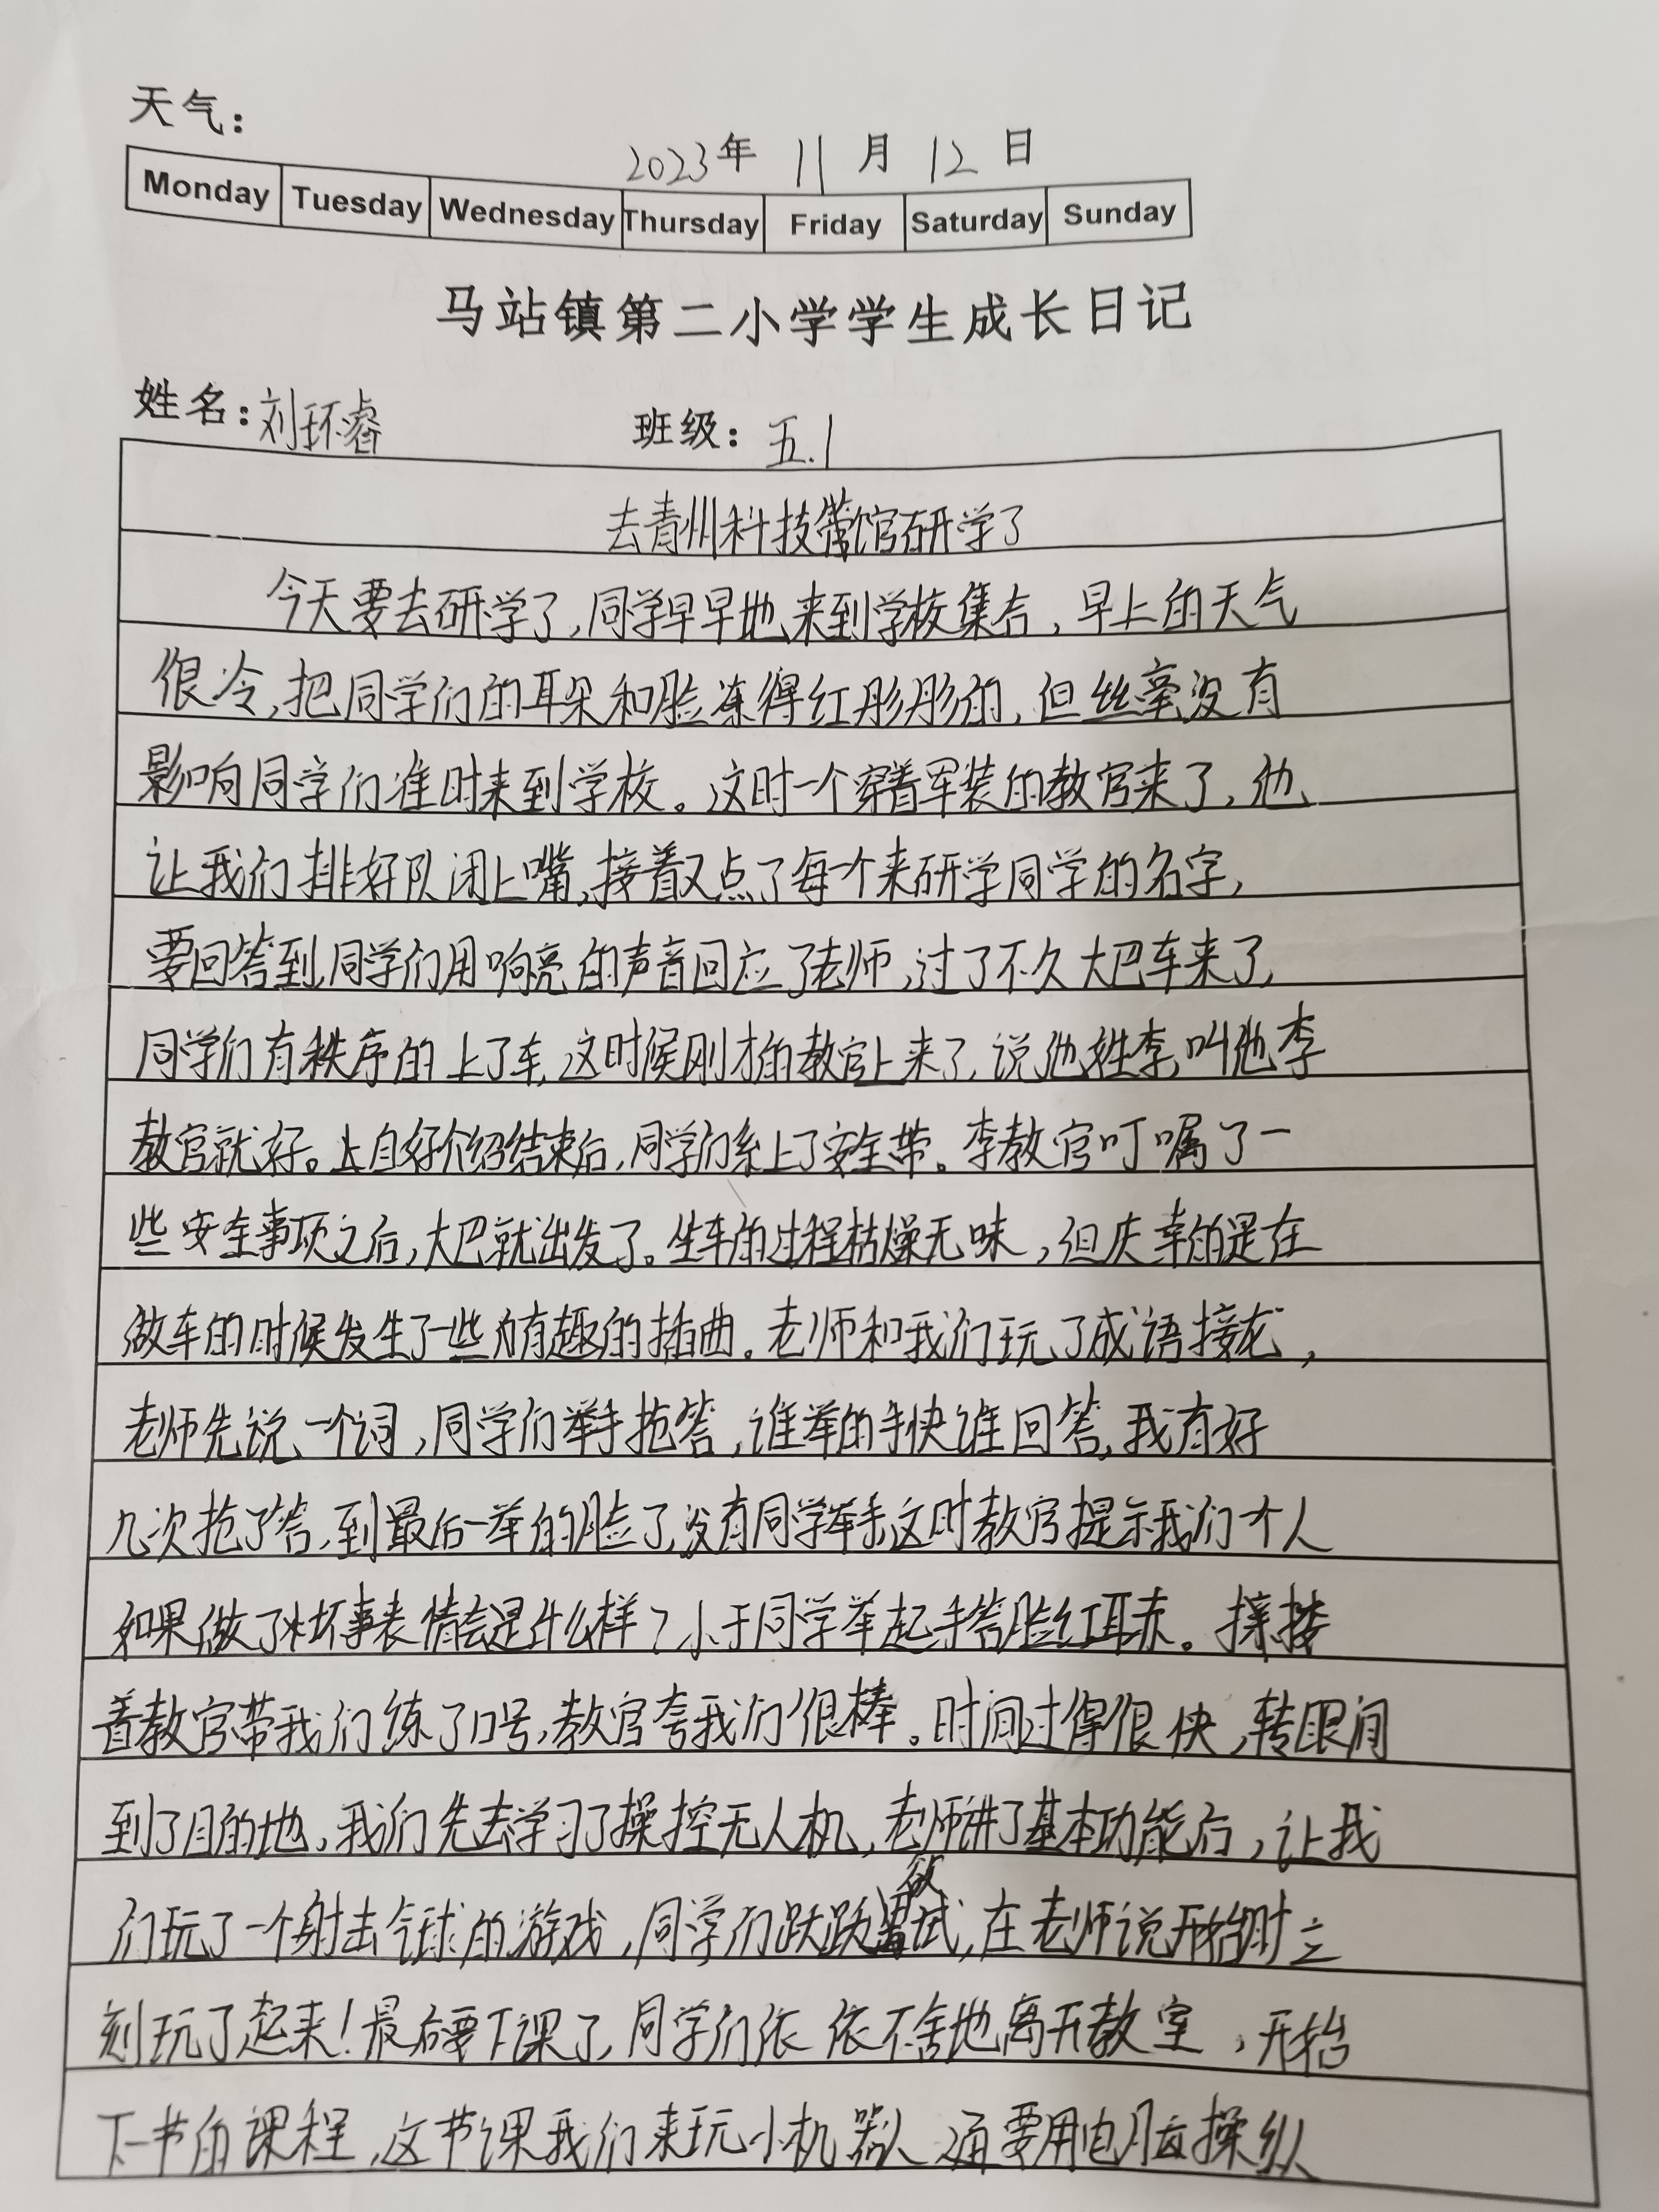 天气：
2023年 11月 12日
Monday Tuesday Wednesday Thursday Friday Saturday Sunday
马站镇第二小学学生成长日记
姓名：刘环睿 班级：五.1
去青州科技馆研学了
今天要去研学了，同学早早地来到学校集合，早上的天气
很冷，把同学们的耳朵和脸冻得红彤彤的，但丝毫没有
影响同学们准时来到学校。这时一个穿着军装的教官来了，他
让我们排好队闭上嘴，接着又点了每个来研学同学的名字，
要回答到，同学们用响亮的声音回应了老师，过了不久大巴车来了，
同学们有秩序的上了车，这时候刚才的教官上来了，说他姓李，叫他李
教官就好。自好介绍结束后，同学们系上了安全带。李教官叮嘱了一
些安全事项之后，大巴就出发了。坐车的过程枯燥无味，但庆幸的是在
做车的时候发生了一些有趣的插曲。老师和我们玩了成语接龙，
老师先说一个词，同学们举手抢答，谁举的手快谁回答，我有好
几次抢了答，到最后一举的脸了，没有同学举手，这时教官提示我们个人
如果做了坏事表情会是什么样？小于同学举起手答脸红耳赤。接
着教官带我们练了口号，教官夸我们很棒。时间过得很快，转眼间
到了目的地，我们先去学习了操控无人机，老师讲了基本功能后，让我
们玩了一个射击气球的游戏，同学们跃跃欲试，在老师说开始时立
刻玩了起来！最后要下课了，同学们依依不舍地离开教室，开始
下一节的课程，这节课我们来玩小机器人 要用电脑操纵